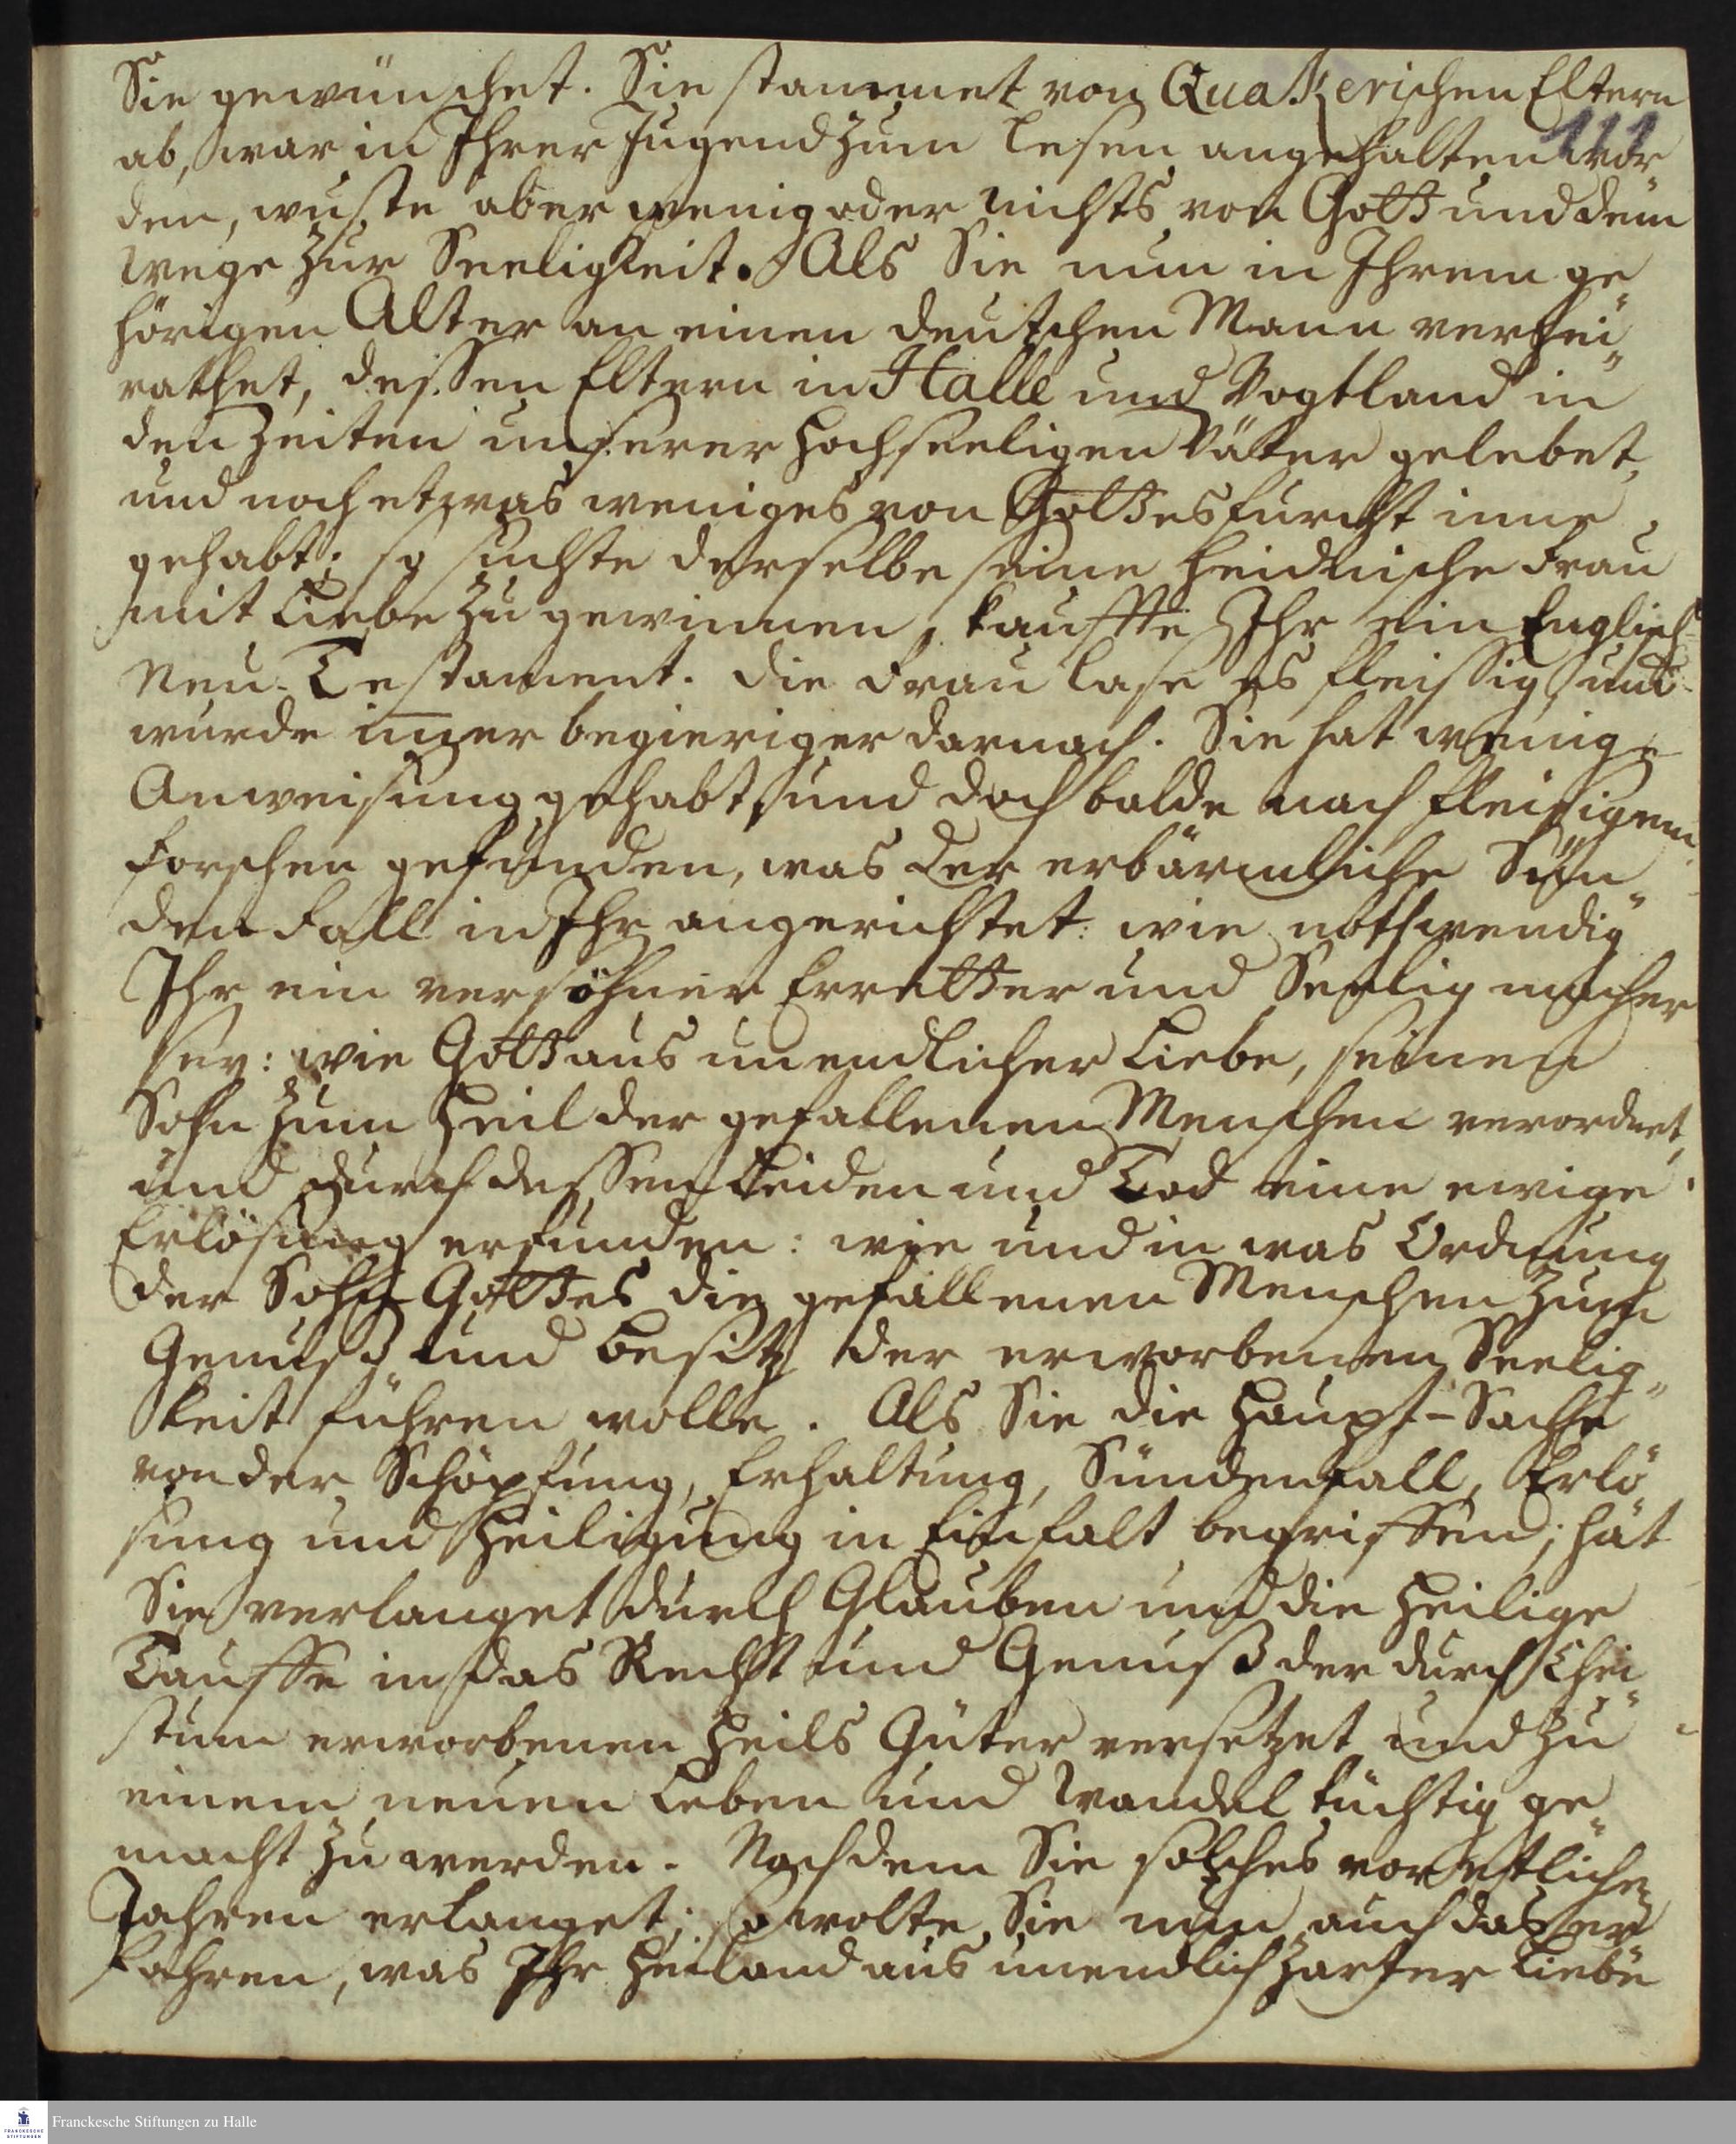 Sie gewünschet. Sie stammet von Quakerischen Eltern
111
ab, war in Ihrer Jugend zum lesen angehalten wor„
den, wuste aber wenig oder nichts von Gott und dem
Wege zur Seeligkeit. Als Sie nun in Ihrem ge„
hörigen Alter an einen deutschen Mann verhei„
rathet, dessen Eltern in Halle und Vogtland in
den Zeiten unserer Hochseeligen Väter gelebet,
und noch etwas weniges von Gottesfurcht inne
gehabt; so suchte derselbe seine heidnische Frau
mit Liebe zu gewinnen, kauffte Ihr ein Englisch
Neu-Testament. Die Frau lase es fleissig und
wurde im̅er begieriger darnach. Sie hat wenige
Anweisung gehabt, und doch balde nach fleissigem
forschen gefunden, was der erbärmliche Sün„
den Fall in Ihr angerichtet: wie nothwendig
Ihr ein versöhner Erretter und Seeligmacher
sey: wie Gott aus unendlicher Liebe, seinen
Sohn zum Heil der gefallenen Menschen verordnet,
und durch dessen Leiden und Tod eine ewige
Erlösung erfunden: wie und in was Ordnung
der Sohn Gottes die gefallenen Menschen zum
Genuss und Besitz der erworbenen Seelig„
keit führen wolle. Als Sie die Haupt-Sache
von der Schöpfung, Erhaltung, Sündenfall, Erlö„
sung und Heiligung in Einfalt begriffen; hat
Sie verlanget durch Glauben und die Heilige
Tauffe in das Recht und Genuß der durch Chri„
stum erworbenen Heils Güter versetzet und zu
einem neuen Leben und Wandel tüchtig ge„
macht zu werden. Nachdem Sie solches vor etlichen
Jahren erlanget; so wolte Sie nun auch das er„
fahren, was Ihr Heiland aus unendlich zarter Liebe
FRANCKESCHE
STIFTUNGEN
Franckesche Stiftungen zu Halle